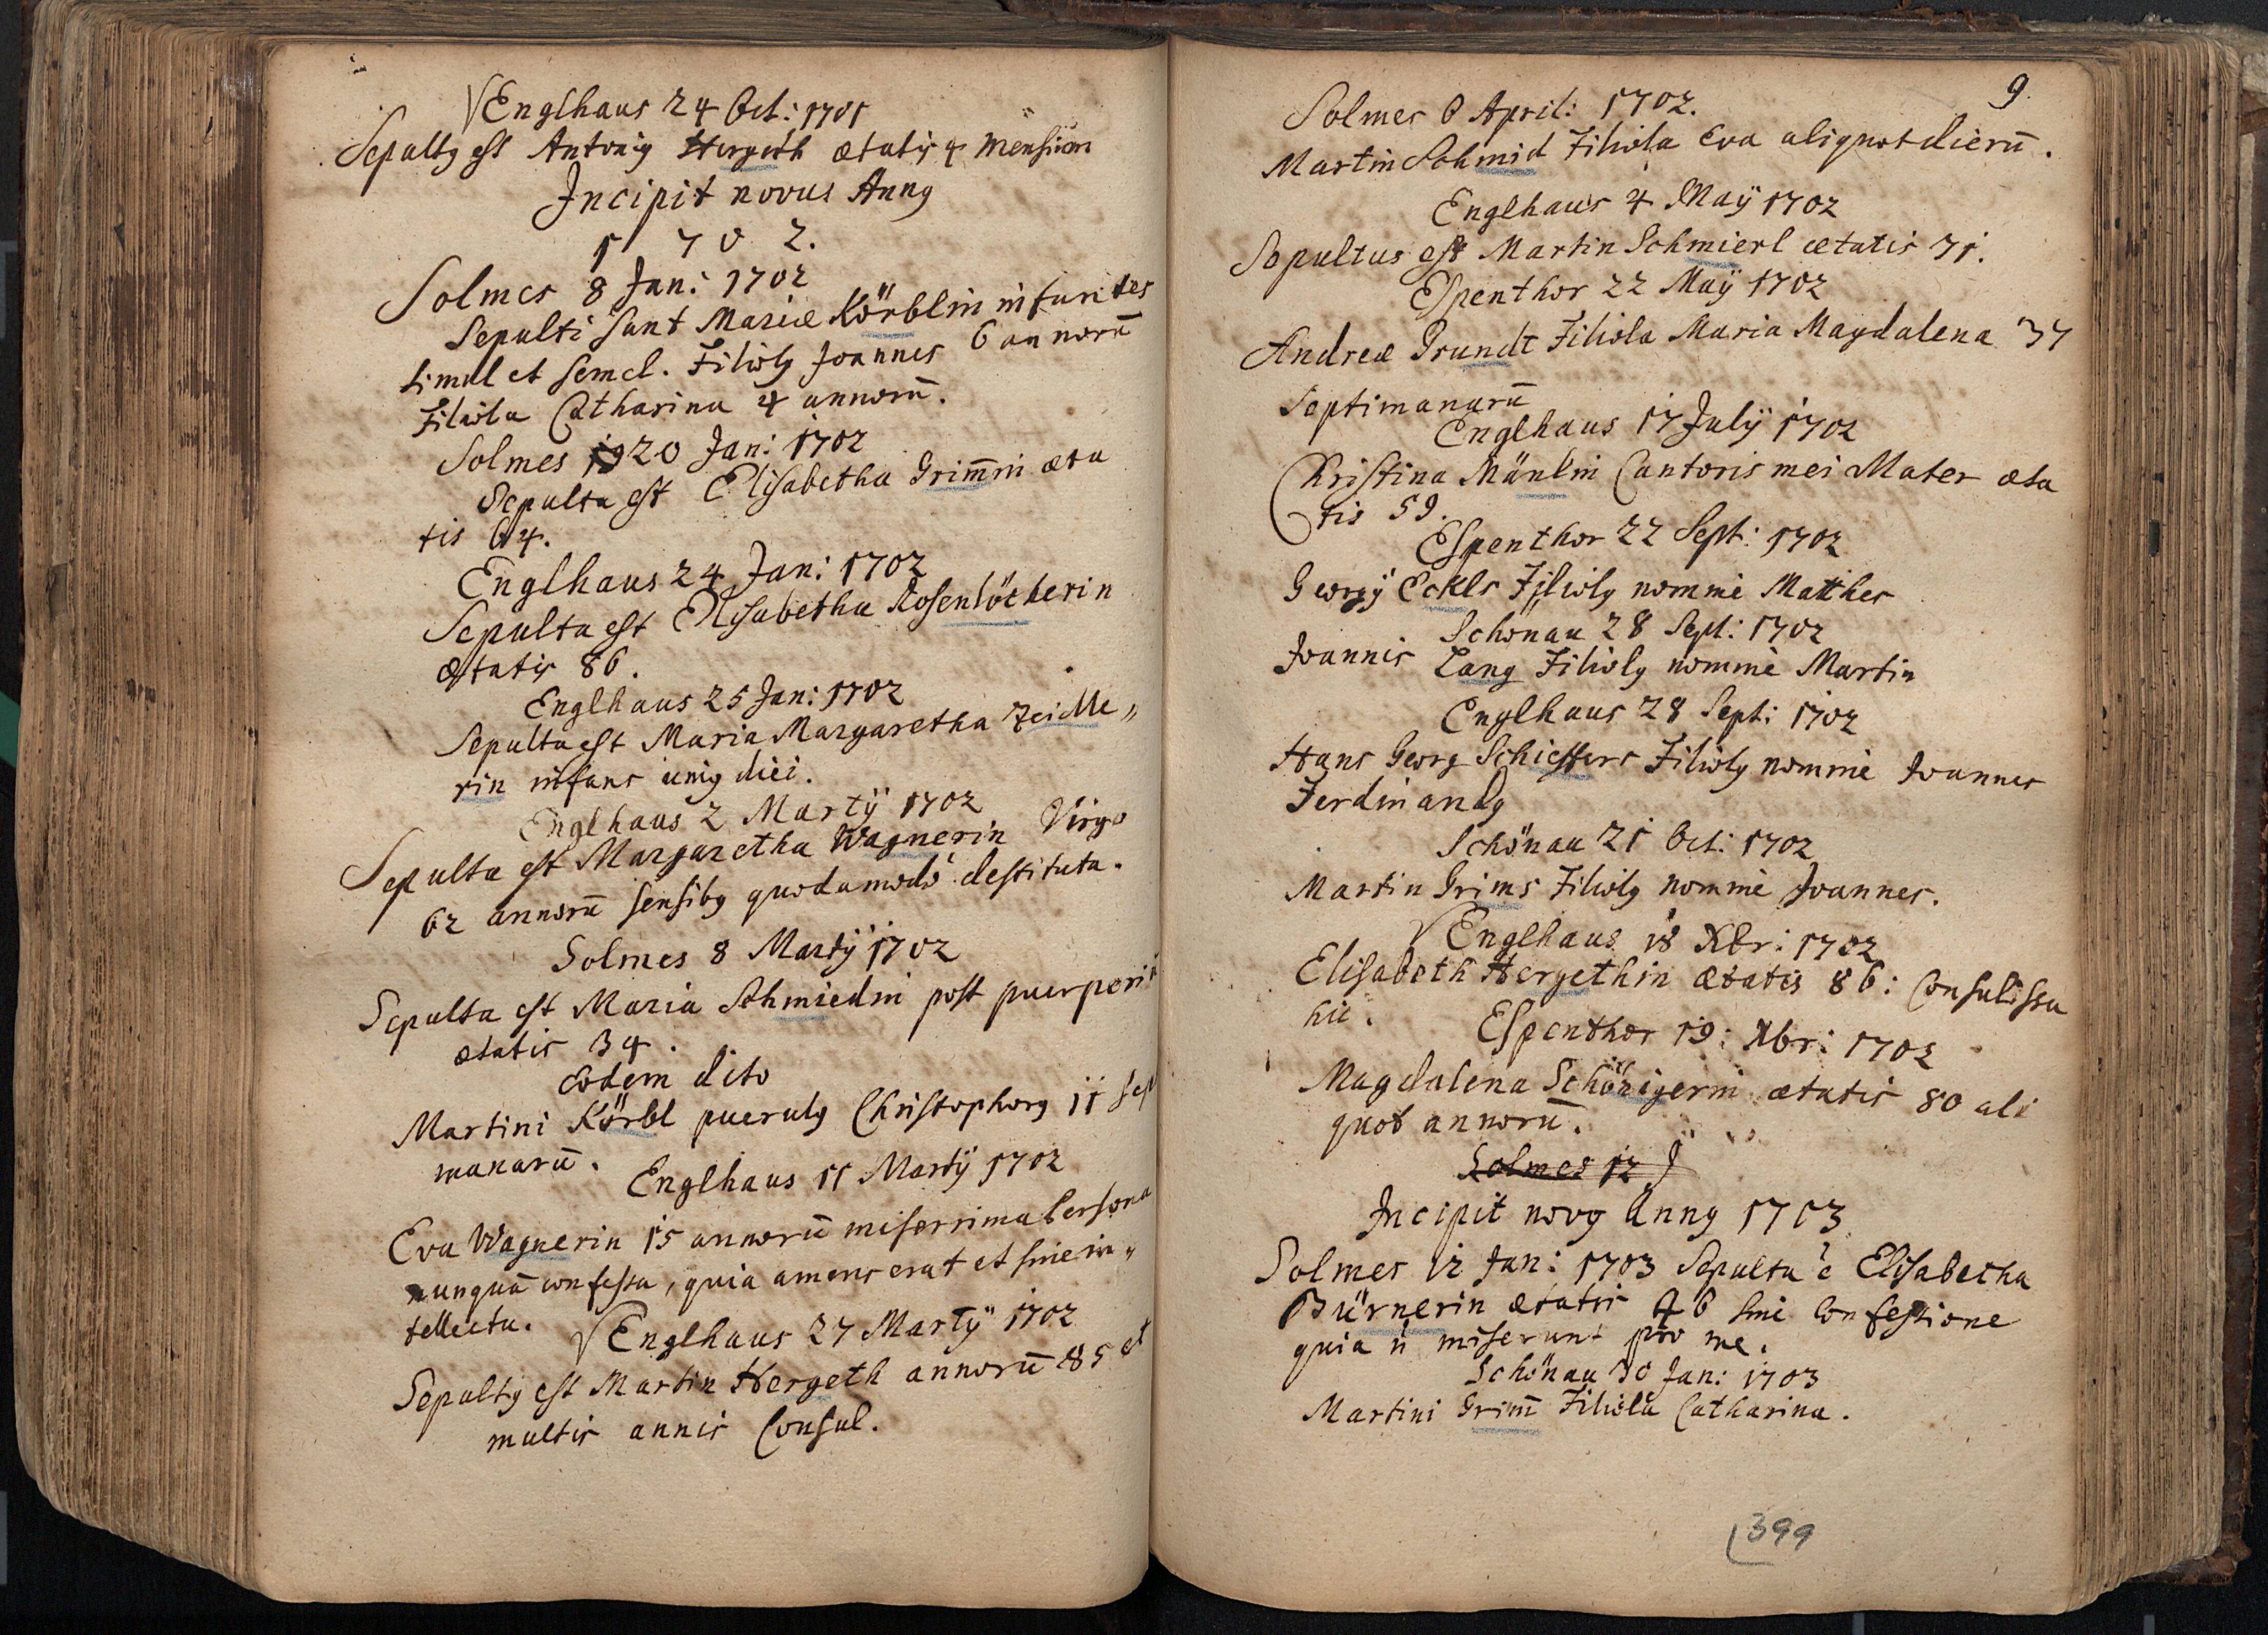 Englhaus 24 Oct: 1701
Sepultq est Antoniq Hergeth ætatis 4 Mensium
Incipit novus Annq
1 7 0 2.
Solmes 8 Jan: 1702
Sepulti sunt Mariæ Körblin infantes
simul et semel. Filiolq Joannes 6 annorū
Filiola Catharina 4 annorū.
Solmes 20 Jan: 1702
Sepulta est Elisabetha Grim̄in æta
tis 64.
Englhaus 24 Jan: 1702
Sepulta est Elisabetha Rosenlöcherin
ætatis 86.
Englhaus 25 Jan: 1702
Sepulta est Maria Margaretha Zeidle„
rin infans uniq diei.
Englhaus 2 Martÿ 1702
Sepulta est Margaretha Wagnerin Virgo
62 annorū sensibq quodamodò destituta.
Solmes 8 Martÿ 1702
Sepulta est Maria Schmiedin post puerperiū
ætatis 34.
Eodem dito
Martini Körbl puerulq Christophorq 11 sep
manarū.
Englhaus 11 Martÿ 1702
Eva Wagnerin 15 annorū miserrima Persona
nunquā confessa, quia amens erat et sine in„
tellectu.
Englhaus 27 Martÿ 1702
Sepultq est Martin Hergeth annorū 85 et
multis annis Consul.
9
Solmes 6 April: 1702.
Martin Schmid Filiola Eva aliquot dierū.
Englhaus 4 Maÿ 1702
Sepultus est Martin Schmierl ætatis 71.
Espenthor 22 Maÿ 1702
Andreæ Grundt Filiola Maria Magdalena 37
Septimanarū
Englhaus 17 Julÿ 1702
Christina Mänlin Cantoris mei Mater æta
tis 59.
Espenthor 22 Sept: 1702
Georgÿ Eckls Filiolq nomine Matthes
Schönau 28 Sept: 1702
Joannis Lang Filiolq nomine Martin
Englhaus 28 Sept: 1702
Hans Georg Schieffers Filiolq nomine Joannes
Ferdinandq
Schönau 21 Oct: 1702
Martin Grims Filiolq nomine Joannes.
Englhaus 18 Xbr: 1702
Elisabeth Hergethin ætatis 86: Consulissa
hic.
Espenthor 19: Xbr: 1702
Magdalena Schörigerin ætatis 80 ali
quot annorū.
Solmes 12 J
Incipit novq Annq 1703
Solmes 12 Jan: 1703 Sepulta ē Elisabetha
Bürnerin ætatis 46 sine Confessione
quia n̄ miserunt pro me.
Schönau 30 Jan: 1703
Martini Grim̄ Filiola Catharina.
399